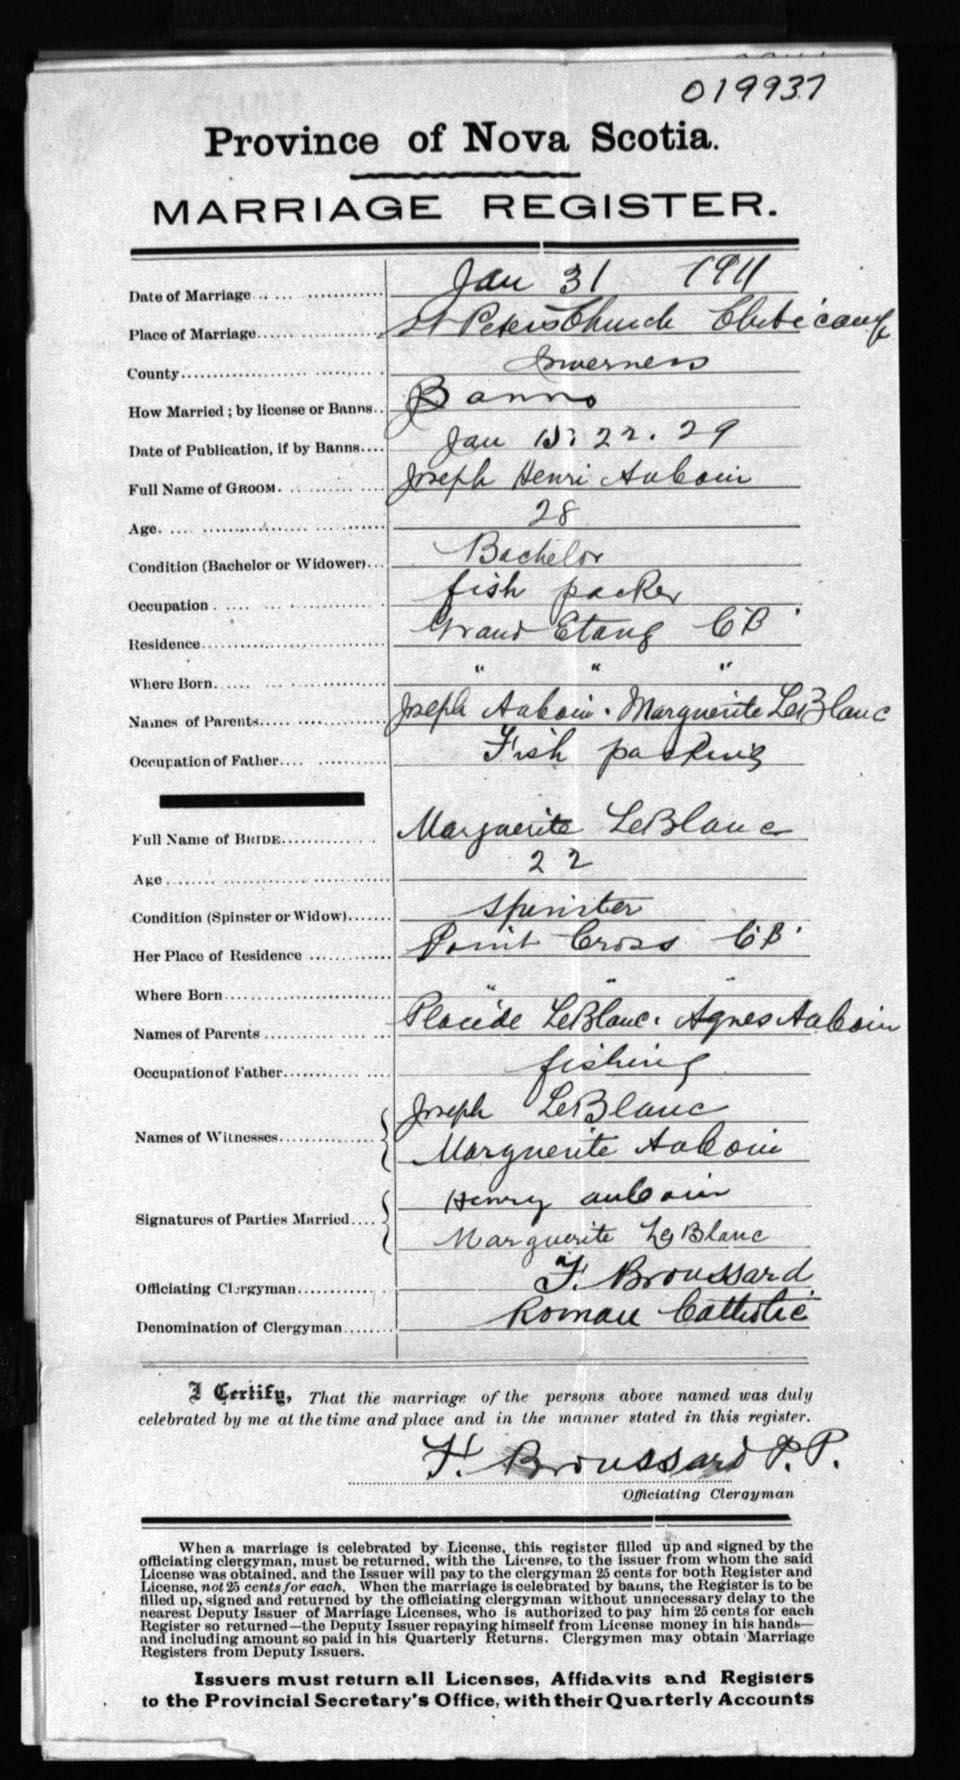 019937
Province of Nova Scotia.
MARRIAGE REGISTER.
Date of Marriage Jan 31 1911
Place of Marriage St Peters Church Cheticamp
County Inverness
How Married; by license or Banns Banns
Date of Publication, if by Banns Jan 15. 22. 29
Full Name of GROOM Joseph Henri Aucoin
Age 28
Condition (Bachelor or Widower) Bachelor
Occupation fish packer
Residence Grand Etang CB
Where Born " " "
Names of Parents Joseph Aucoin. Marguerite LeBlanc
Occupation of Father Fish packing
Full Name of BRIDE Marguerite LeBlanc
Age 22
Condition (Spinster or Widow) Spinster
Her Place of Residence Point Cross CB
Where Born " " "
Names of Parents Placide LeBlanc. Agnes Aucoin
Occupation of Father fishing
Names of Witnesses Joseph LeBlanc
Marguerite Aucoin
Signatures of Parties Married Henry aucoin
Marguerite LeBlanc
Officiating Clergyman F. Broussard
Denomination of Clergyman Roman Catholic
I Certify, That the marriage of the persons above named was duly
celebrated by me at the time and place and in the manner stated in this register.
F. Broussard P.P.
Officiating Clergyman
When a marriage is celebrated by License, this register filled up and signed by the
officiating clergyman, must be returned, with the License, to the issuer from whom the said
License was obtained, and the Issuer will pay to the clergyman 25 cents for both Register and
License, not 25 cents for each. When the marriage is celebrated by banns, the Register is to be
filled up, signed and returned by the officiating clergyman without unnecessary delay to the
nearest Deputy Issuer of Marriage Licenses, who is authorized to pay him 25 cents for each
Register so returned—the Deputy Issuer repaying himself from License money in his hands—
and including amount so paid in his Quarterly Returns. Clergymen may obtain Marriage
Registers from Deputy Issuers.
Issuers must return all Licenses, Affidavits and Registers
to the Provincial Secretary's Office, with their Quarterly Accounts